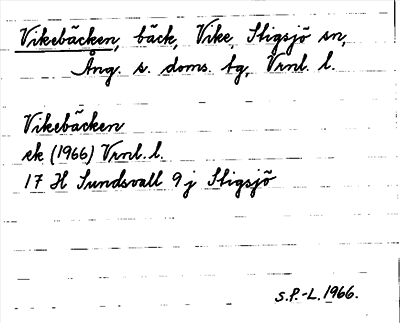 Vikebäcken, bäck, Vike, Stigsjö sn,
Ång. s. doms. tg, Vrnl. l.
Vikebäcken
ek (1966) Vrnl. l.
17 H Sundsvall 9 j Stigsjö
S.P.-L. 1966.